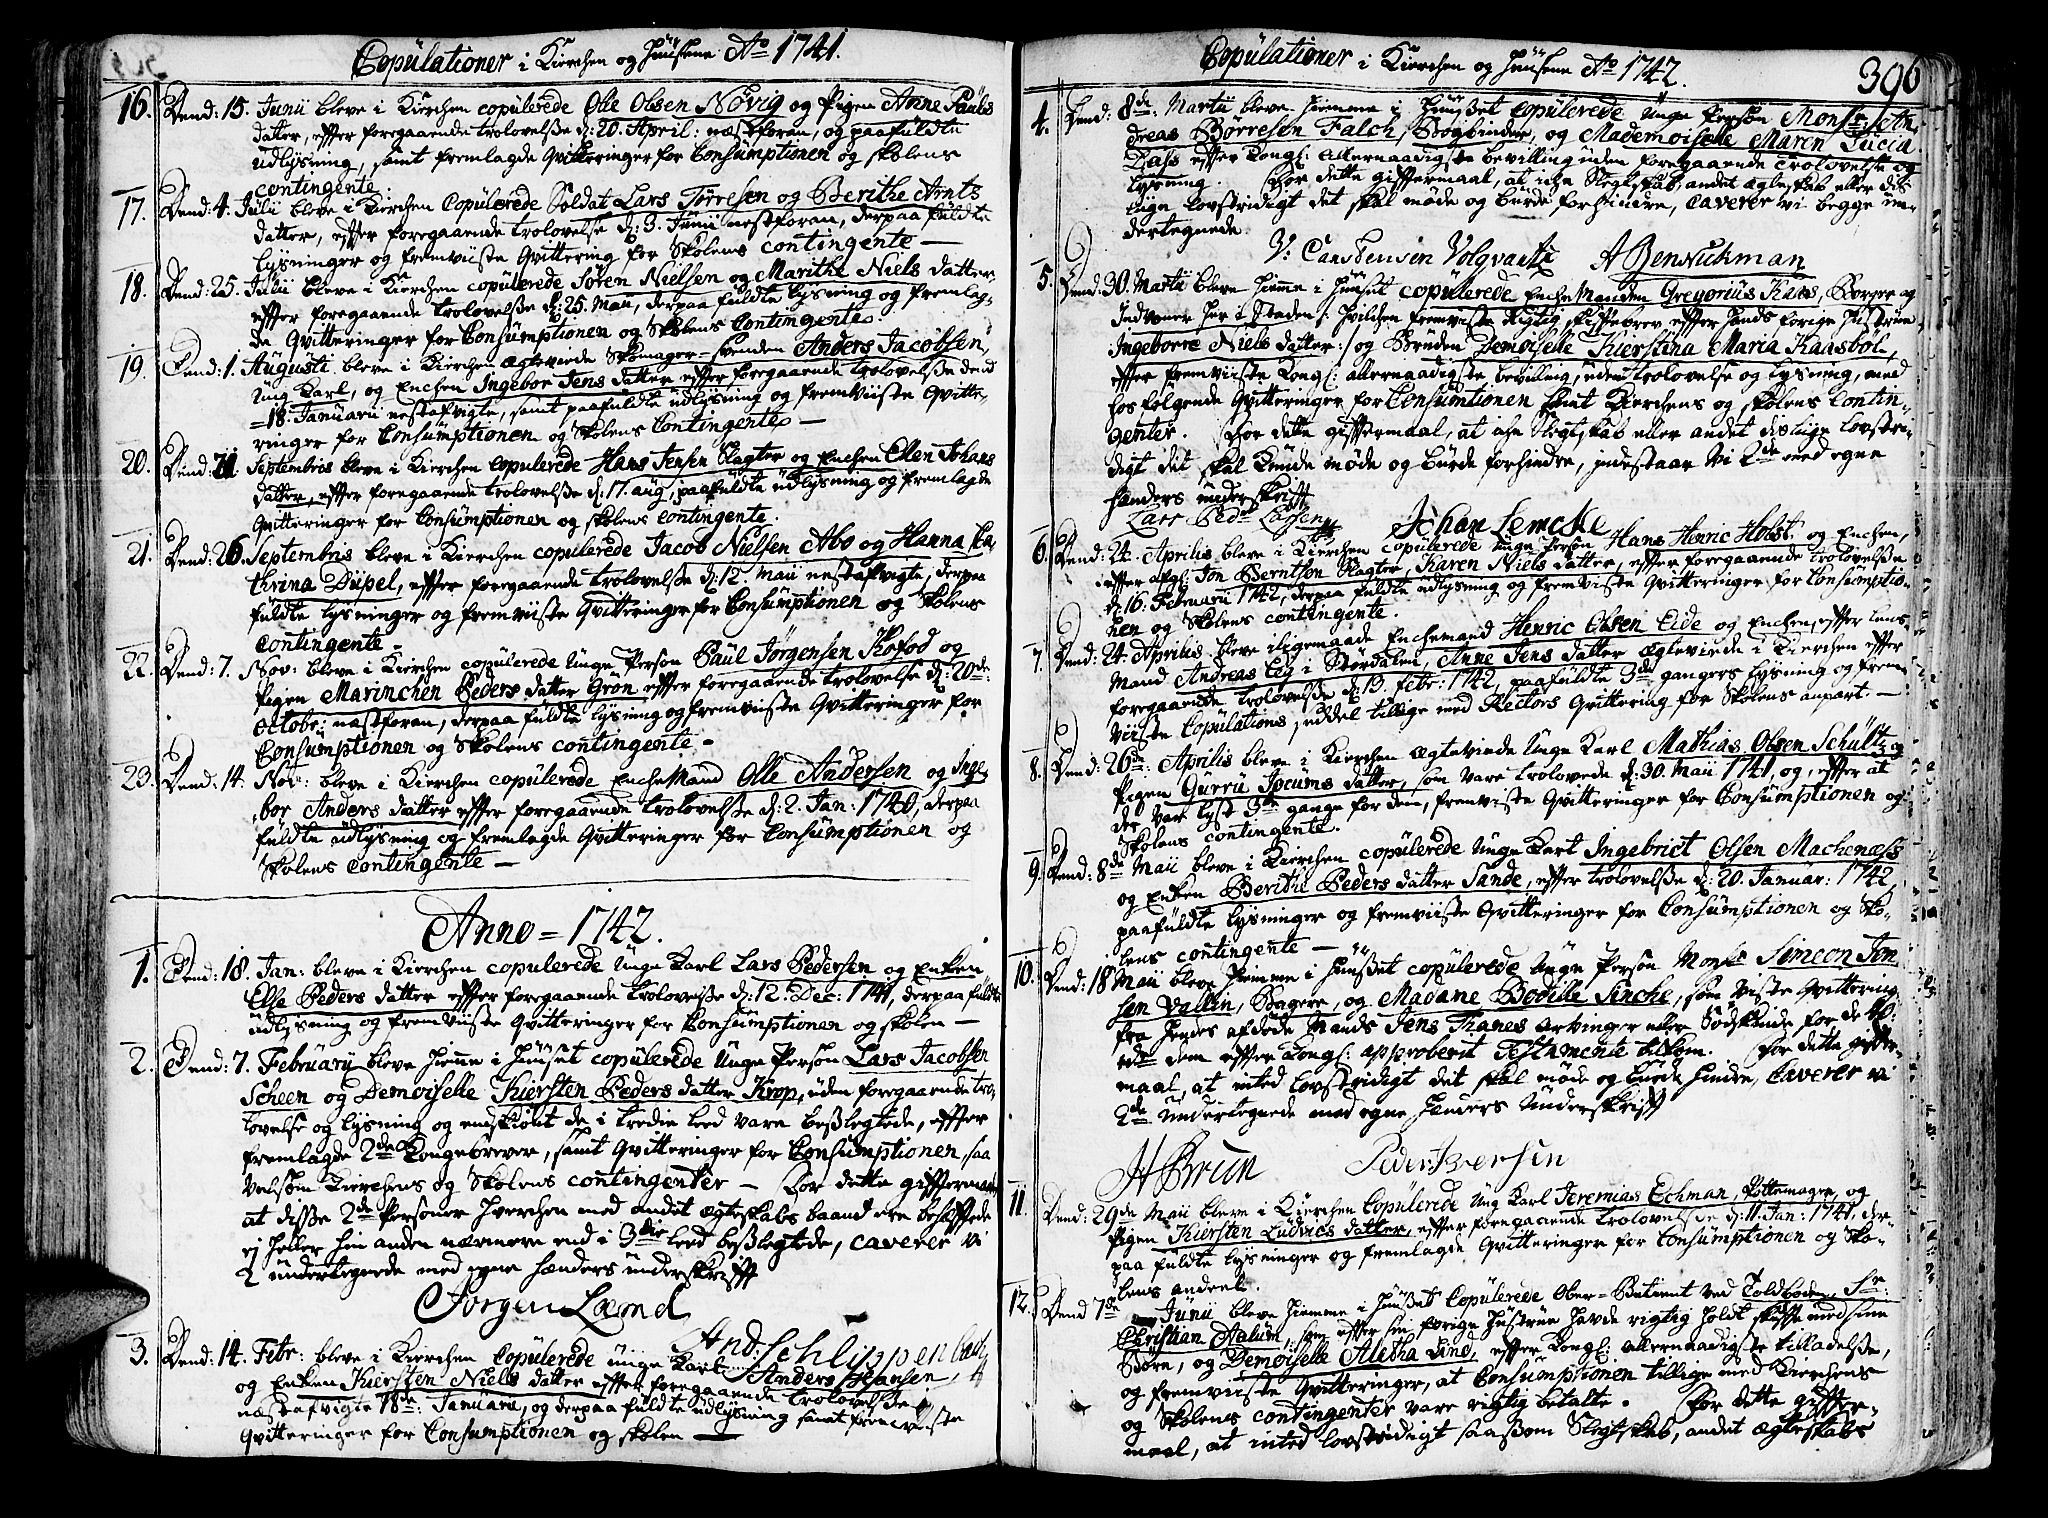 Copulationer i Kierchen og Huusene Ao 1741.
16. Dend: 15. Junii bleve i Kierchen copulerede Olle Olsen Nøvig og Pigen Anne Pauls
datter, effter foregaaende trolovelse d: 20. April: næstforan, og paafuldte
udlysning, samt fremlagde Qvitteringer for Consumptionen og Skolens
contingente.
17. Dend: 4. Julii bleve i Kierchen Copulerede Soldat Lars Torresen og Berithe Arnts
datter, effter foregaaende trolovelse d: 3. Junii nestforan, derpaa fuldte
lysninger og fremviiste Qvittering for Skolens contingente —
18. Dend: 25. Julii bleve i Kierchen copulerede Sören Nielsen og Marithe Niels datter
effter foregaaende trolovelse d: 25. Maii, derpaa fuldte lysning og fremlag-
de Qvitteringer for Consumptionen og Skolens Contingente.
19. Dend: 1. Augusti bleve i Kierchen ægteviede Skomager-svenden Anders Jacobsen,
Ung Karl, og Enchen Ingebor Jens datter effter foregaaende trolovelse dend
18. Januarii nestafvigte, samt paafuldte udlysning og fremviiste Qvitte-
ringer for Consumptionen og Skolens Contingente —
20. Dend: 21. Septembris bleve i Kierchen Copulerede Hans Jensen Slagter og Enchen Ellen Johans
datter, effter foregaaende trolovelse d: 17. aug, paafuldte udlysning og fremlagde
Qvitteringer for Consumptionen og Skolens contingente.
21. Dend: 26. Septembris bleve i Kierchen copulerede Jacob Nielsen Abo og Hanna Ca-
thrina Düpel, effter foregaaende trolovelse d: 12. Maii nestafvigte, derpaa
fuldte lysninger og fremviiste Qvitteringer for Consumptionen og Skolens
Contingente —
22. Dend: 7. Nov: bleve i Kierchen copulerede Unge Person Paul Jørgensen Kofod og
Pigen Marinchen Peders datter Grön effter foregaaende trolovelse d: 20de:
Octobr: næstforan, derpaa fuldte lysning og fremviiste Qvitteringer for
Consumptionen og Skolens contingente —
23. Dend: 14. Nov: bleve i Kierchen copulerede Enche Mand Olle Andersen og Inge-
bor Anders datter effter foregaaende trolovelse d: 2. Jan: 1740, derpaa
fuldte udlysning og fremlagde Qvitteringer for Consumptionen og
Skolens Contingente —
Anno = 1742.
1. Dend: 18. Jan: bleve i Kierchen copulerede Unge Karl Lars Pedersen og Enken
Elle Peders datter effter foregaaende trolovelse d: 12. Dec: 1741, derpaa fuldte
udlysning og fremviiste Qvitteringer for Consumptionen og Skolen —
2. Dend: 7. Februarij bleve hiemme i Huuset copulerede Unge Person Lars Jacobsen
Scheen og Demoiselle Kiersten Peders datter Krop, uden foregaaende tro-
lovelse og lysning og endskiönt de i tredie leed vare beslegtede, effter
fremlagde 2de Kongebrever, samt Qvitteringer for Consumptionen, saa
velsom Kierchens og Skolens contingenter — For dette giftermaal
at disse 2de Personer hverchen med andet ægteskabs baand ere behefftede
ej heller hin anden nærmere end i 3die leed beslegtede, caverer vi
2 undertegnede med egne hænders underskrifft
Jörgen Lœmd
And: Schlippenbach
3. Dend: 14. Febr: bleve i Kierchen Copulerede unge Karl Anders Hansen,
og Enken Kiersten Niels datter effter foregaaende trolovelse d:
næstafvigte 18de: Januarii, og derpaa fuldte udlysning samt fremviiste
Qvitteringer for Consumptionen og Skolen —
Copulationer i Kierchen og Huusene Ao 1742.
396
4. Dend: 8de: Martii bleve hiemme i Huuset Copulerede Unge Person Monsr: An-
dreas Börresen Falch, Bogbinder, og Mademoiselle Maren Lucia
Hass effter Kongl: allernaadigste bevilling uden foregaaende trolovelse og
lysning. For dette giftermaal, at icke Slegtskab, andet Egteskab eller des
liige lovstridigt det skal møde og burde forhindre, caverer vi begge un-
dertegnede.
V: Carstensen Volqvartz A Benwickman
5. Dend: 30. Martii bleve hieme i Huuset copulerede Enche Manden Gregorius Hans, Borger og
Indvoner her i Staden /: hvilchen fremviiste rigtig skiftebrev effter hans forige Hustrue
Ingeborre Niels datter :/ og Bruden Demoiselle Kierstina Maria Kaasböl,
effter fremviiste Kongl: allernaadigste bevilling, uden trolovelse og lysning, med
hos følgende Qvitteringer for Consumtionen samt Kierchens og Skolens Contin-
genter. For dette giftermaal, at ey Slegtskab eller andet deslige lovstri-
digt det skal kunde møde og burde forhindre, indestaar vi 2de med egne
hænders underskrifft
Lars Peds Lassen Johan Lemcke
6. Dend: 24. Aprilis bleve i Kierchen copulerede Unge Person Hans Henric Holst og Enchen,
effter afgl: Jon Berntson Slagter, Karen Niels datter, effter foregaaende trolovelse
d: 16. Februarii 1742, derpaa fuldte udlysning og fremviiste Qvitteringer for Consumptio-
nen og Skolens contingente.
7. Dend: 24. Aprilis bleve iligemaade Enchemand Henric Olsen Eide og Enchen, effter lens-
Mand Andreas Ley i Stördalen, Anne Jens datter ægteviede i Kierchen effter
foregaaende trolovelse d: 13. febr: 1742, paafuldte 3de gangers lysning og frem
viiste Copulations seddel tillige med Rectors Qvittering for Skolens anpart. —
8. Dend: 26de: Aprilis bleve i Kierchen ægteviede Unge Karl Mathias Olsen Schultz og
Pigen Gurru Joenms datter, som vare trolovede d: 30. Maii 1741, og, effter at
der var lyst 3de gange for dem, fremviiste Qvitteringer for Consumptionen og
Skolens contingente.
9. Dend: 8de Maii bleve i Kierchen copulerede Unge Karl Ingebrict Olsen Machenæss
og Enken Berithe Peders datter Sande, effter trolovelse d: 20. Januar: 1742,
paafuldte lysninger og fremviiste Qvitteringer for Consumptionen og Sko-
lens contingente —
10. Dend: 18 Maii bleve hiemme i Huuset copulerede Unge Person Monsr Simeon Jon
sen Vallin, Bagere, og Madame Bodille Sincke, som viiste Qvittering
fra hendes afdøde Mands Jens Tranes Arvinger eller Sødskende for de 40:
rdr dem effter Kongl: approberit Testamente tilkom. For dette gifter-
maal, at inted lovstridigt det skal møde og burde hindre, caverer vi
2de Undertegnede med egne Hænders Underskrifft
H Brun Peder Iversen
11. Dend: 29de Maii bleve i Kierchen Copulerede Ung Karl Jeremias Echman, Pottemager, og
Pigen Kiersten Ludvics datter, effter foregaaende trolovelse d: 11. Jan: 1741, der-
paa fuldte lysning og fremlagde Qvitteringer for Consumptionen og Sko-
lens andeel.
12. Dend 7de Junii bleve hiemme i Huuset Copulerede Ober-Betient ved Toldboden Sr:
Christian Aalum, som effter sin forige Hustrue havde rigtig holdt skifte med sine
Børn, og Demoiselle Aletha Lind, effter Kongl: allernaadigste tilladelse,
og fremviiste Qvitteringer, at Consumptionen tillige med Kierchens
og Skolens contingenter vare rigtig betalte. For dette gifter-
maal, at inted lovstridigt saasom Slegtskab, andet ægteskabs